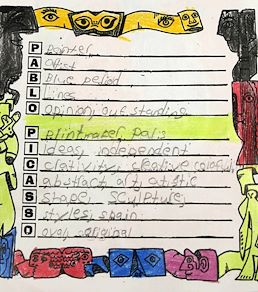 P Painter
A Artist
B Blue period
L Lines
O Opinion, out standing
P Printmacer, Paris
I Ideas, independent
C creativity, creative colorful
A abstract, art, artistic
S shape, sculpture,
S styles, spain
O oval, original